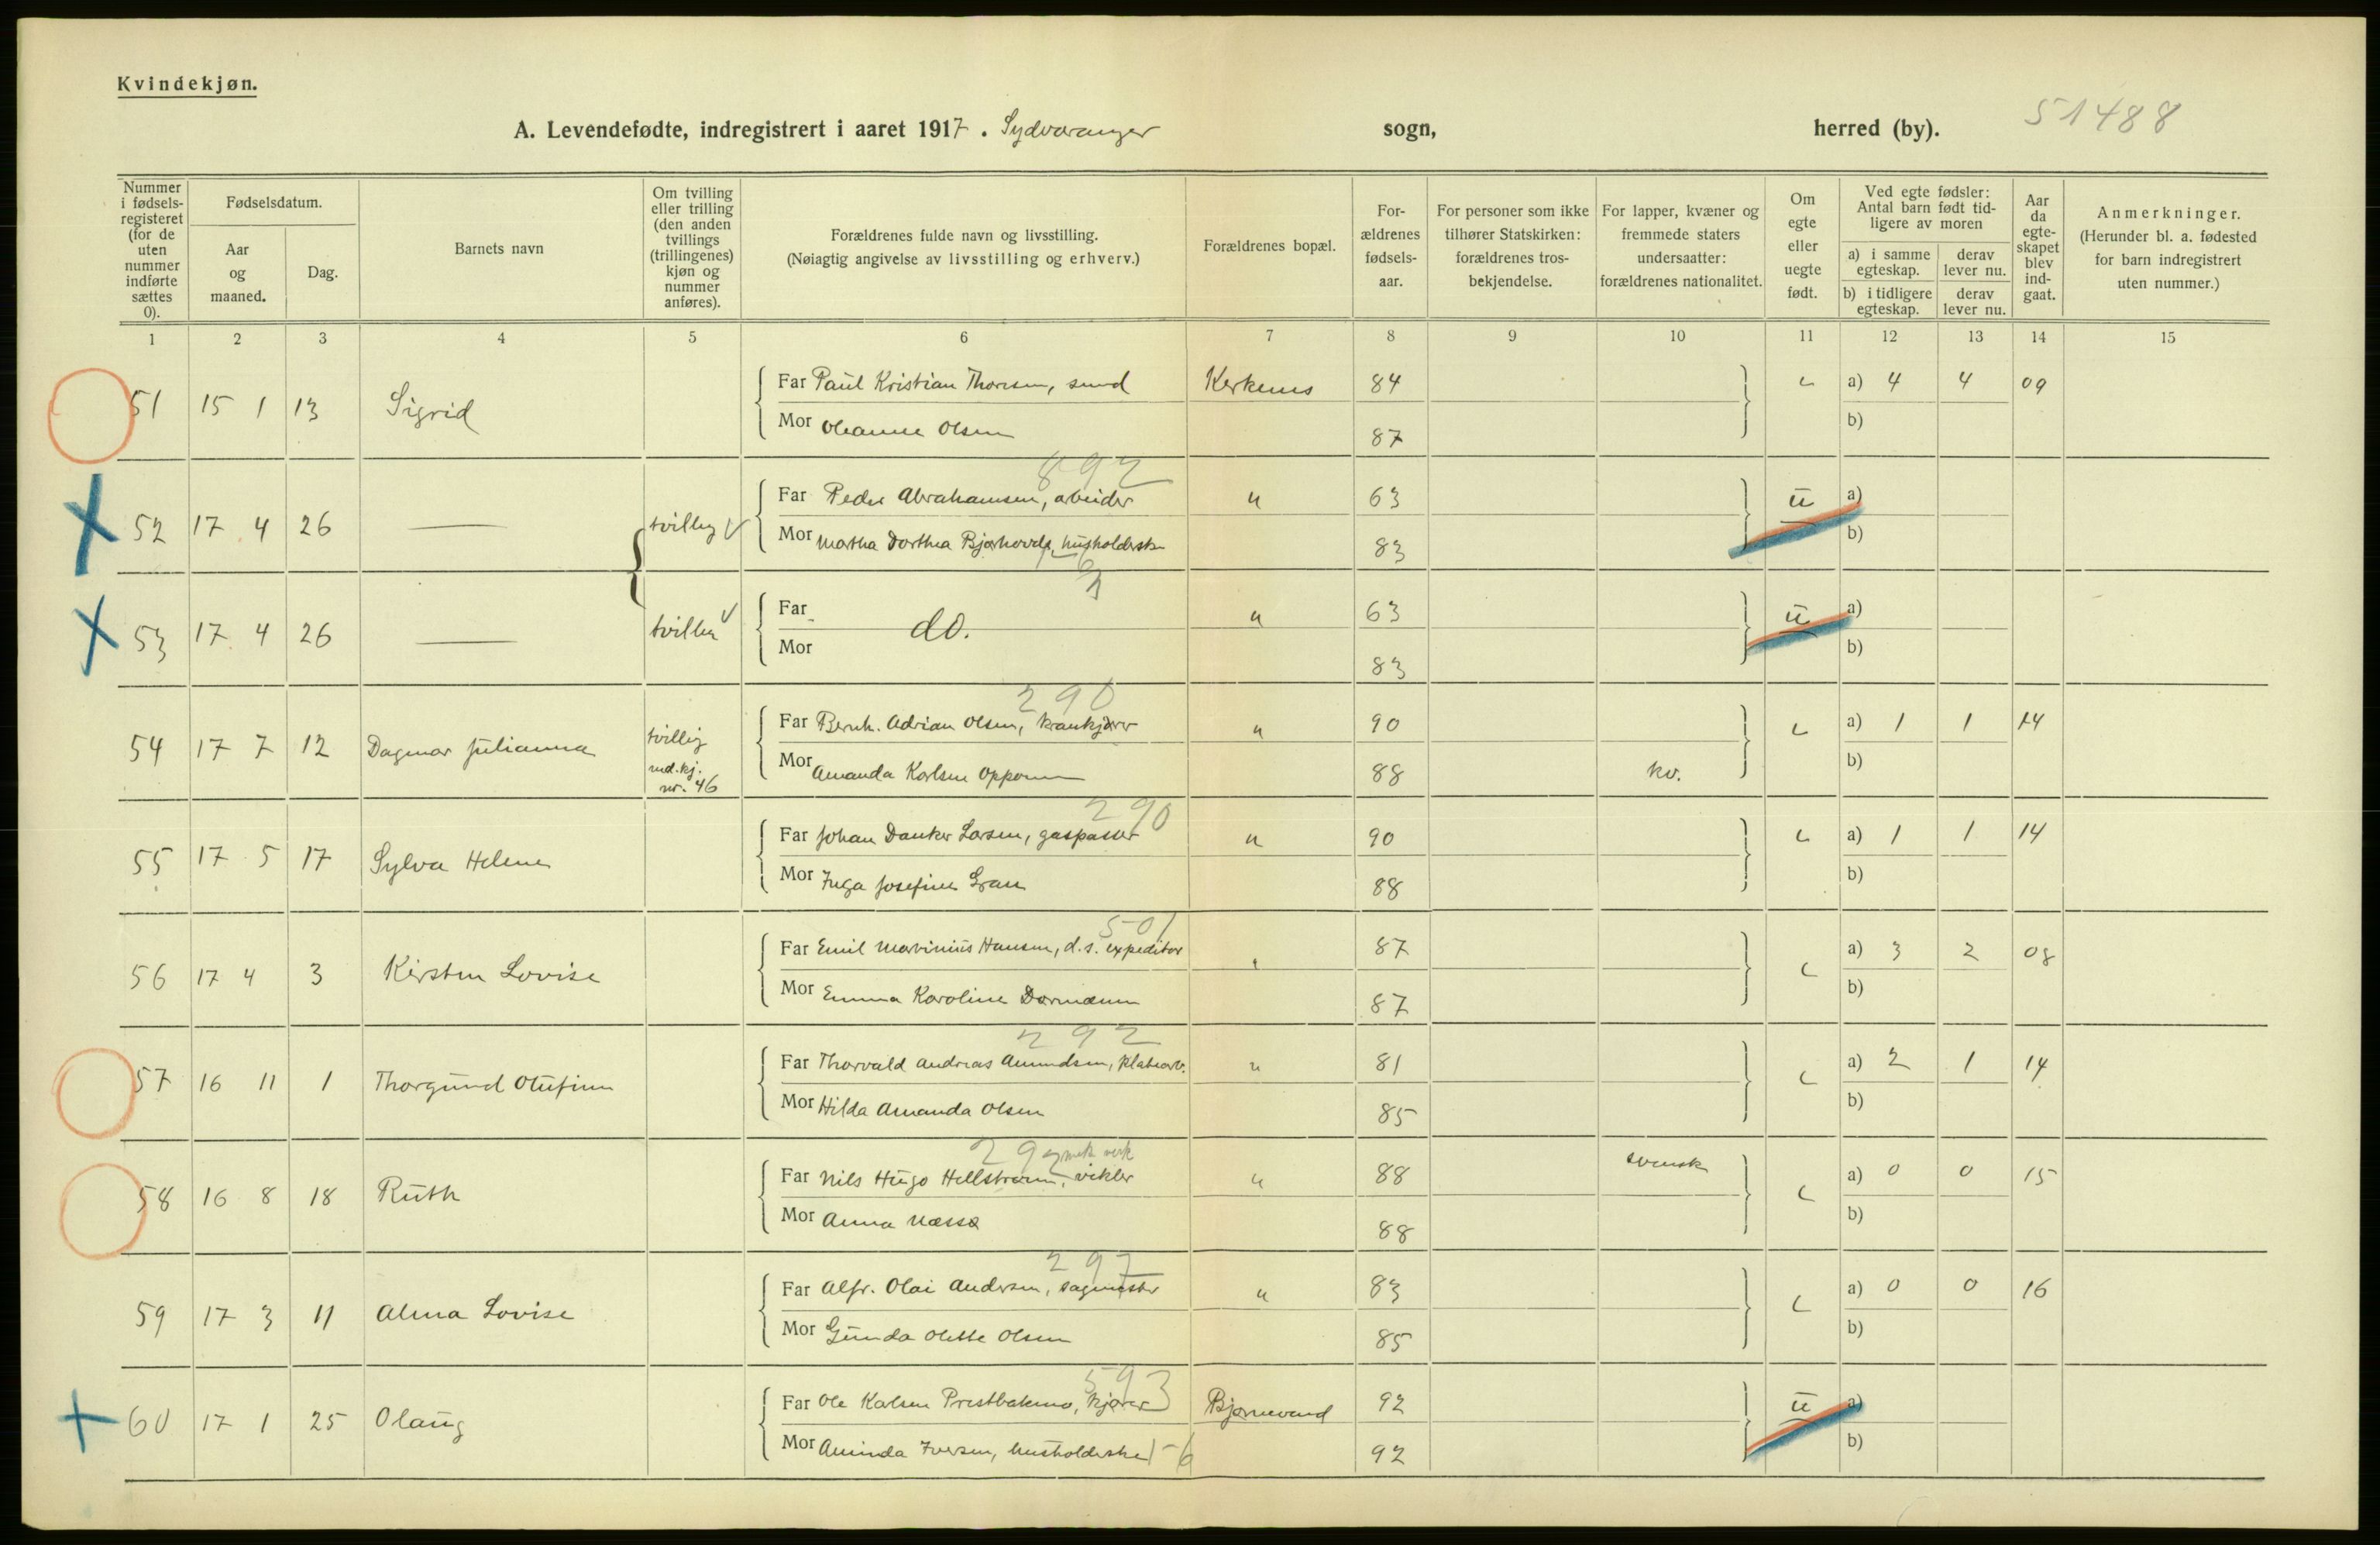 Kvindekjøn.
A. Levendefødte, indregistrert i aaret 1917. Sydvaranger sogn, herred (by). 51488
Nummer i fødselsregisteret (for de uten nummer indførte sættes 0).
Fødselsdatum.
Aar og maaned.
Dag.
Barnets navn
Om tvilling eller trilling (den anden tvillings (trillingenes) kjøn og nummer anføres).
Forældrenes fulde navn og livsstilling.
(Nøiagtig angivelse av livsstilling og erhverv.)
Forældrenes bopæl.
For-ældrenes fødsels-aar.
For personer som ikke tilhører Statskirken: forældrenes tros-bekjendelse.
For lapper, kvæner og fremmede staters undersaatter: forældrenes nationalitet.
Om egte eller uegte født.
Ved egte fødsler: Antal barn født tid-ligere av moren
a) i samme egteskap.
derav lever nu.
b) i tidligere egteskap.
derav lever nu.
Aar da egte-skapet blev ind-gaat.
Anmerkninger.
(Herunder bl. a. fødested for barn indregistrert uten nummer.)
1 2 3 4 5 6 7 8 9 10 11 12 13 14 15
51 15 1 13 Sigrid Far Paul Kristian Thoresen, smed Kirkenes 84 a) 4 4 09
Mor Oleanne Olsen 87 b)
892
52 17 4 26 — tvilling Far Peder Abrahamsen, arbeider " 63 u a)
Mor Martha Dorthea Bjørhovde, husholderske 83 b)
53 17 4 26 — tvilling Far do. " 63 u a)
Mor 83 b)
290
54 17 7 12 Dagmar Julianna tvilling md.kj. nr. 46 Far Bernh. Adrian Olsen, krankjører " 90 a) 1 1 14
Mor Amanda Karlsen 88 kv. b)
290
55 17 5 17 Sylva Helene Far Johan Danker Larsen, gaspasser " 90 a) 1 1 14
Mor Inga Josefine Gran 88 b)
501
56 17 4 3 Kirsten Lovise Far Emil Marinius Hansen, d.s. expeditør " 87 a) 3 2 08
Mor Emma Karoline 87 b)
292
57 16 11 1 Thorgund Olufine Far Thorvald Andreas Amundsen, " 81 a) 2 1 14
Mor Hilda Amanda Olsen 85 b)
58 16 8 18 Ruth Far Nils Hugo Hellstrøm, vikler " 88 svensk a) 0 0 15
Mor Anna Næss 88 b)
297
59 17 3 11 Alma Lovise Far Alfr. Olai Andersen, sagmester " 83 a) 0 0 16
Mor Gunda Olette Olsen 85 b)
593
60 17 1 25 Olaug Far Ole Karlsen Prestbakmo, kjører Bjørnevand 92 u a)
Mor Aminda Iversen, husholderske 92 b)